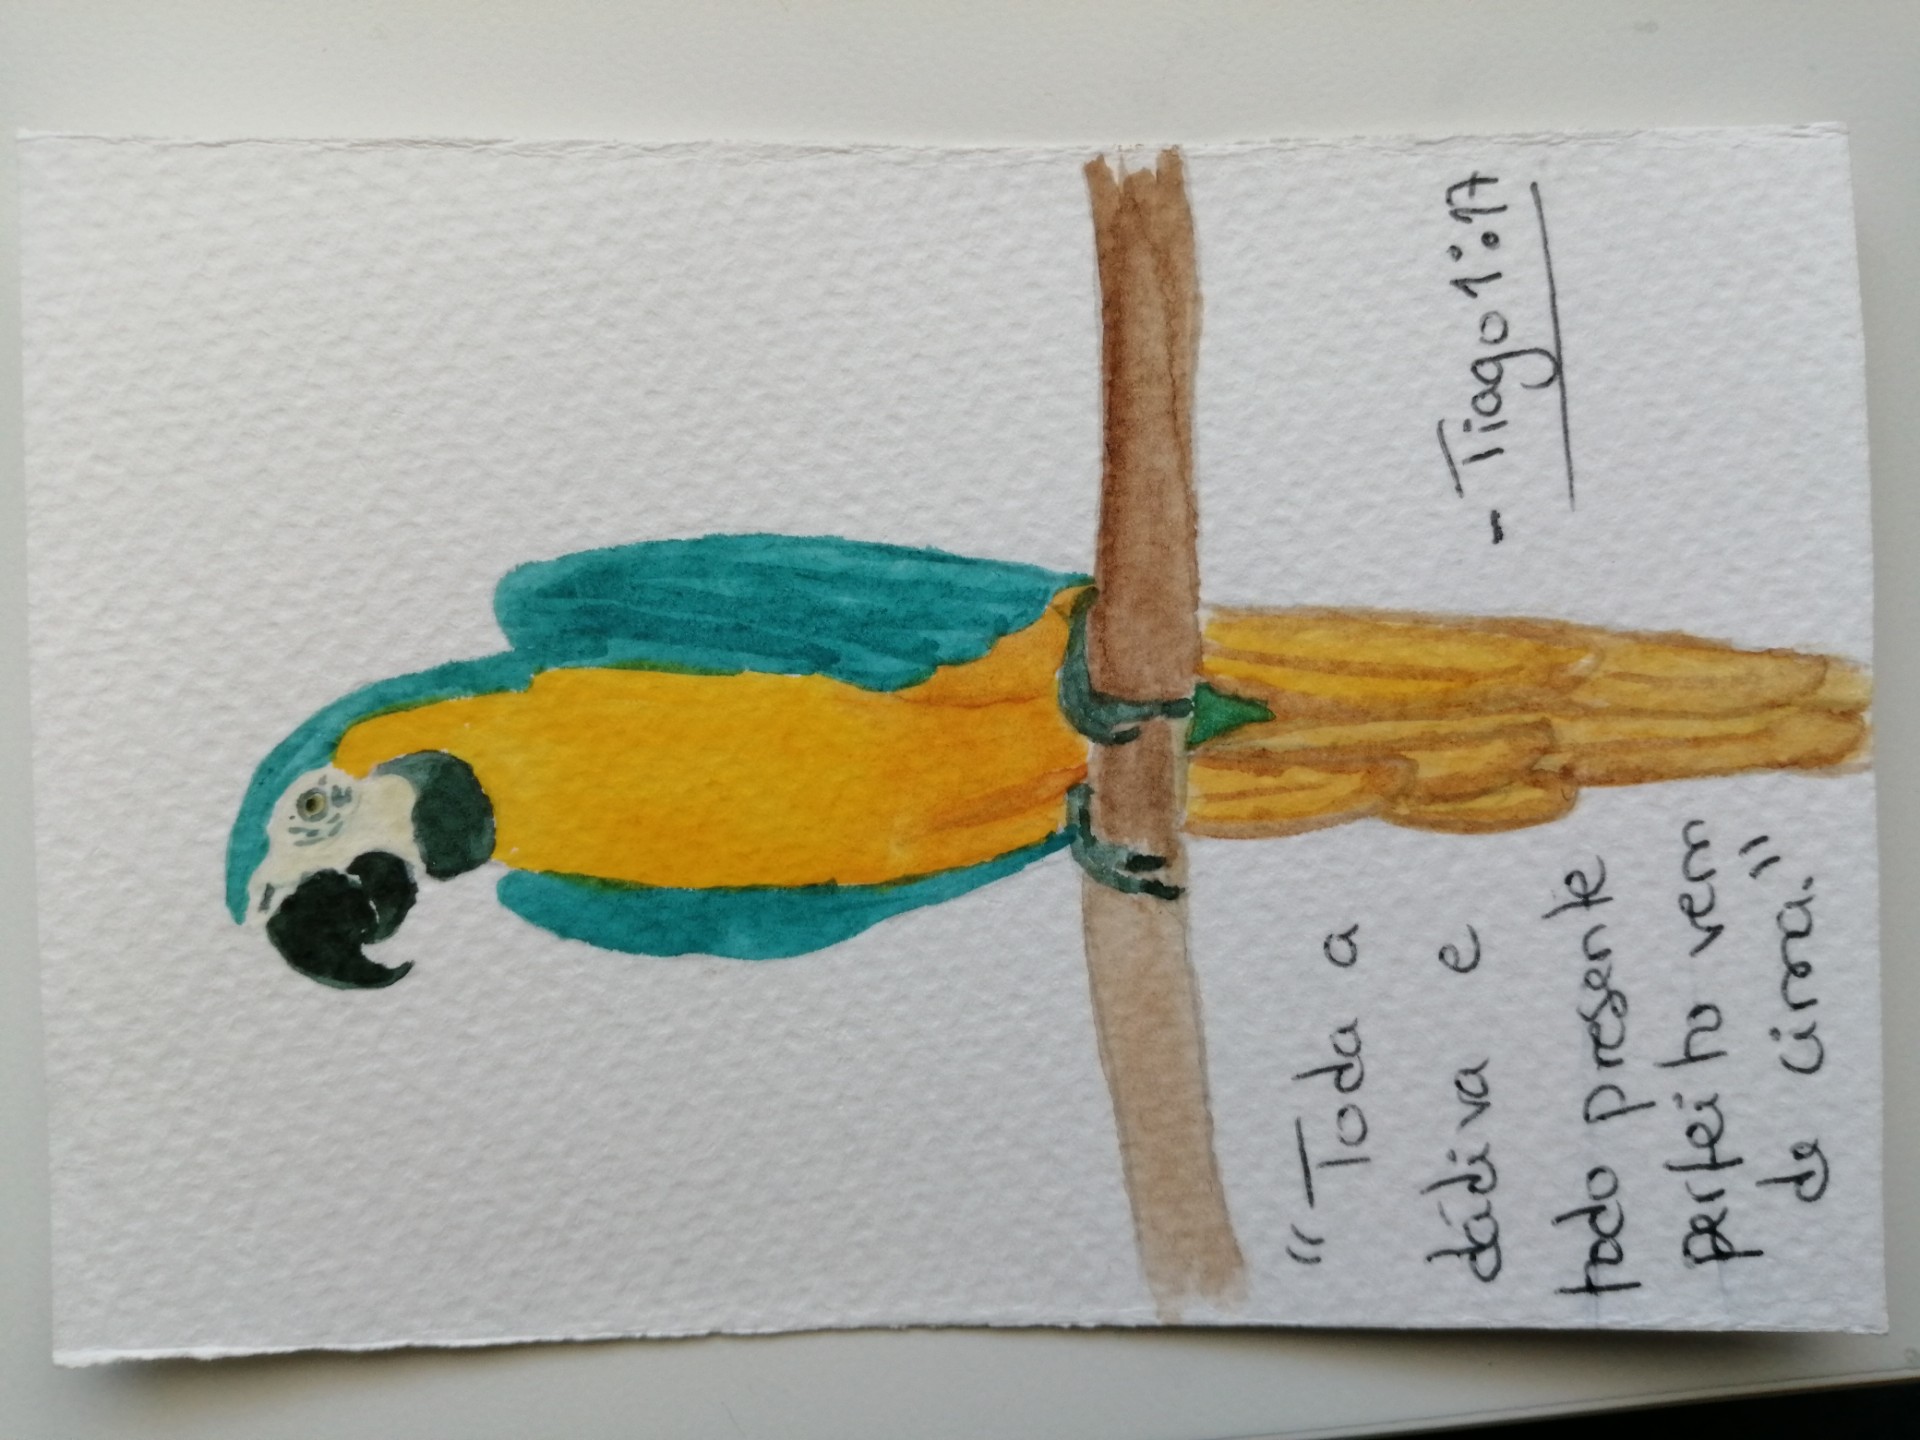 "Toda a
dádiva e
todo presente
perfeito vem
de cima."
- Tiago 1:17